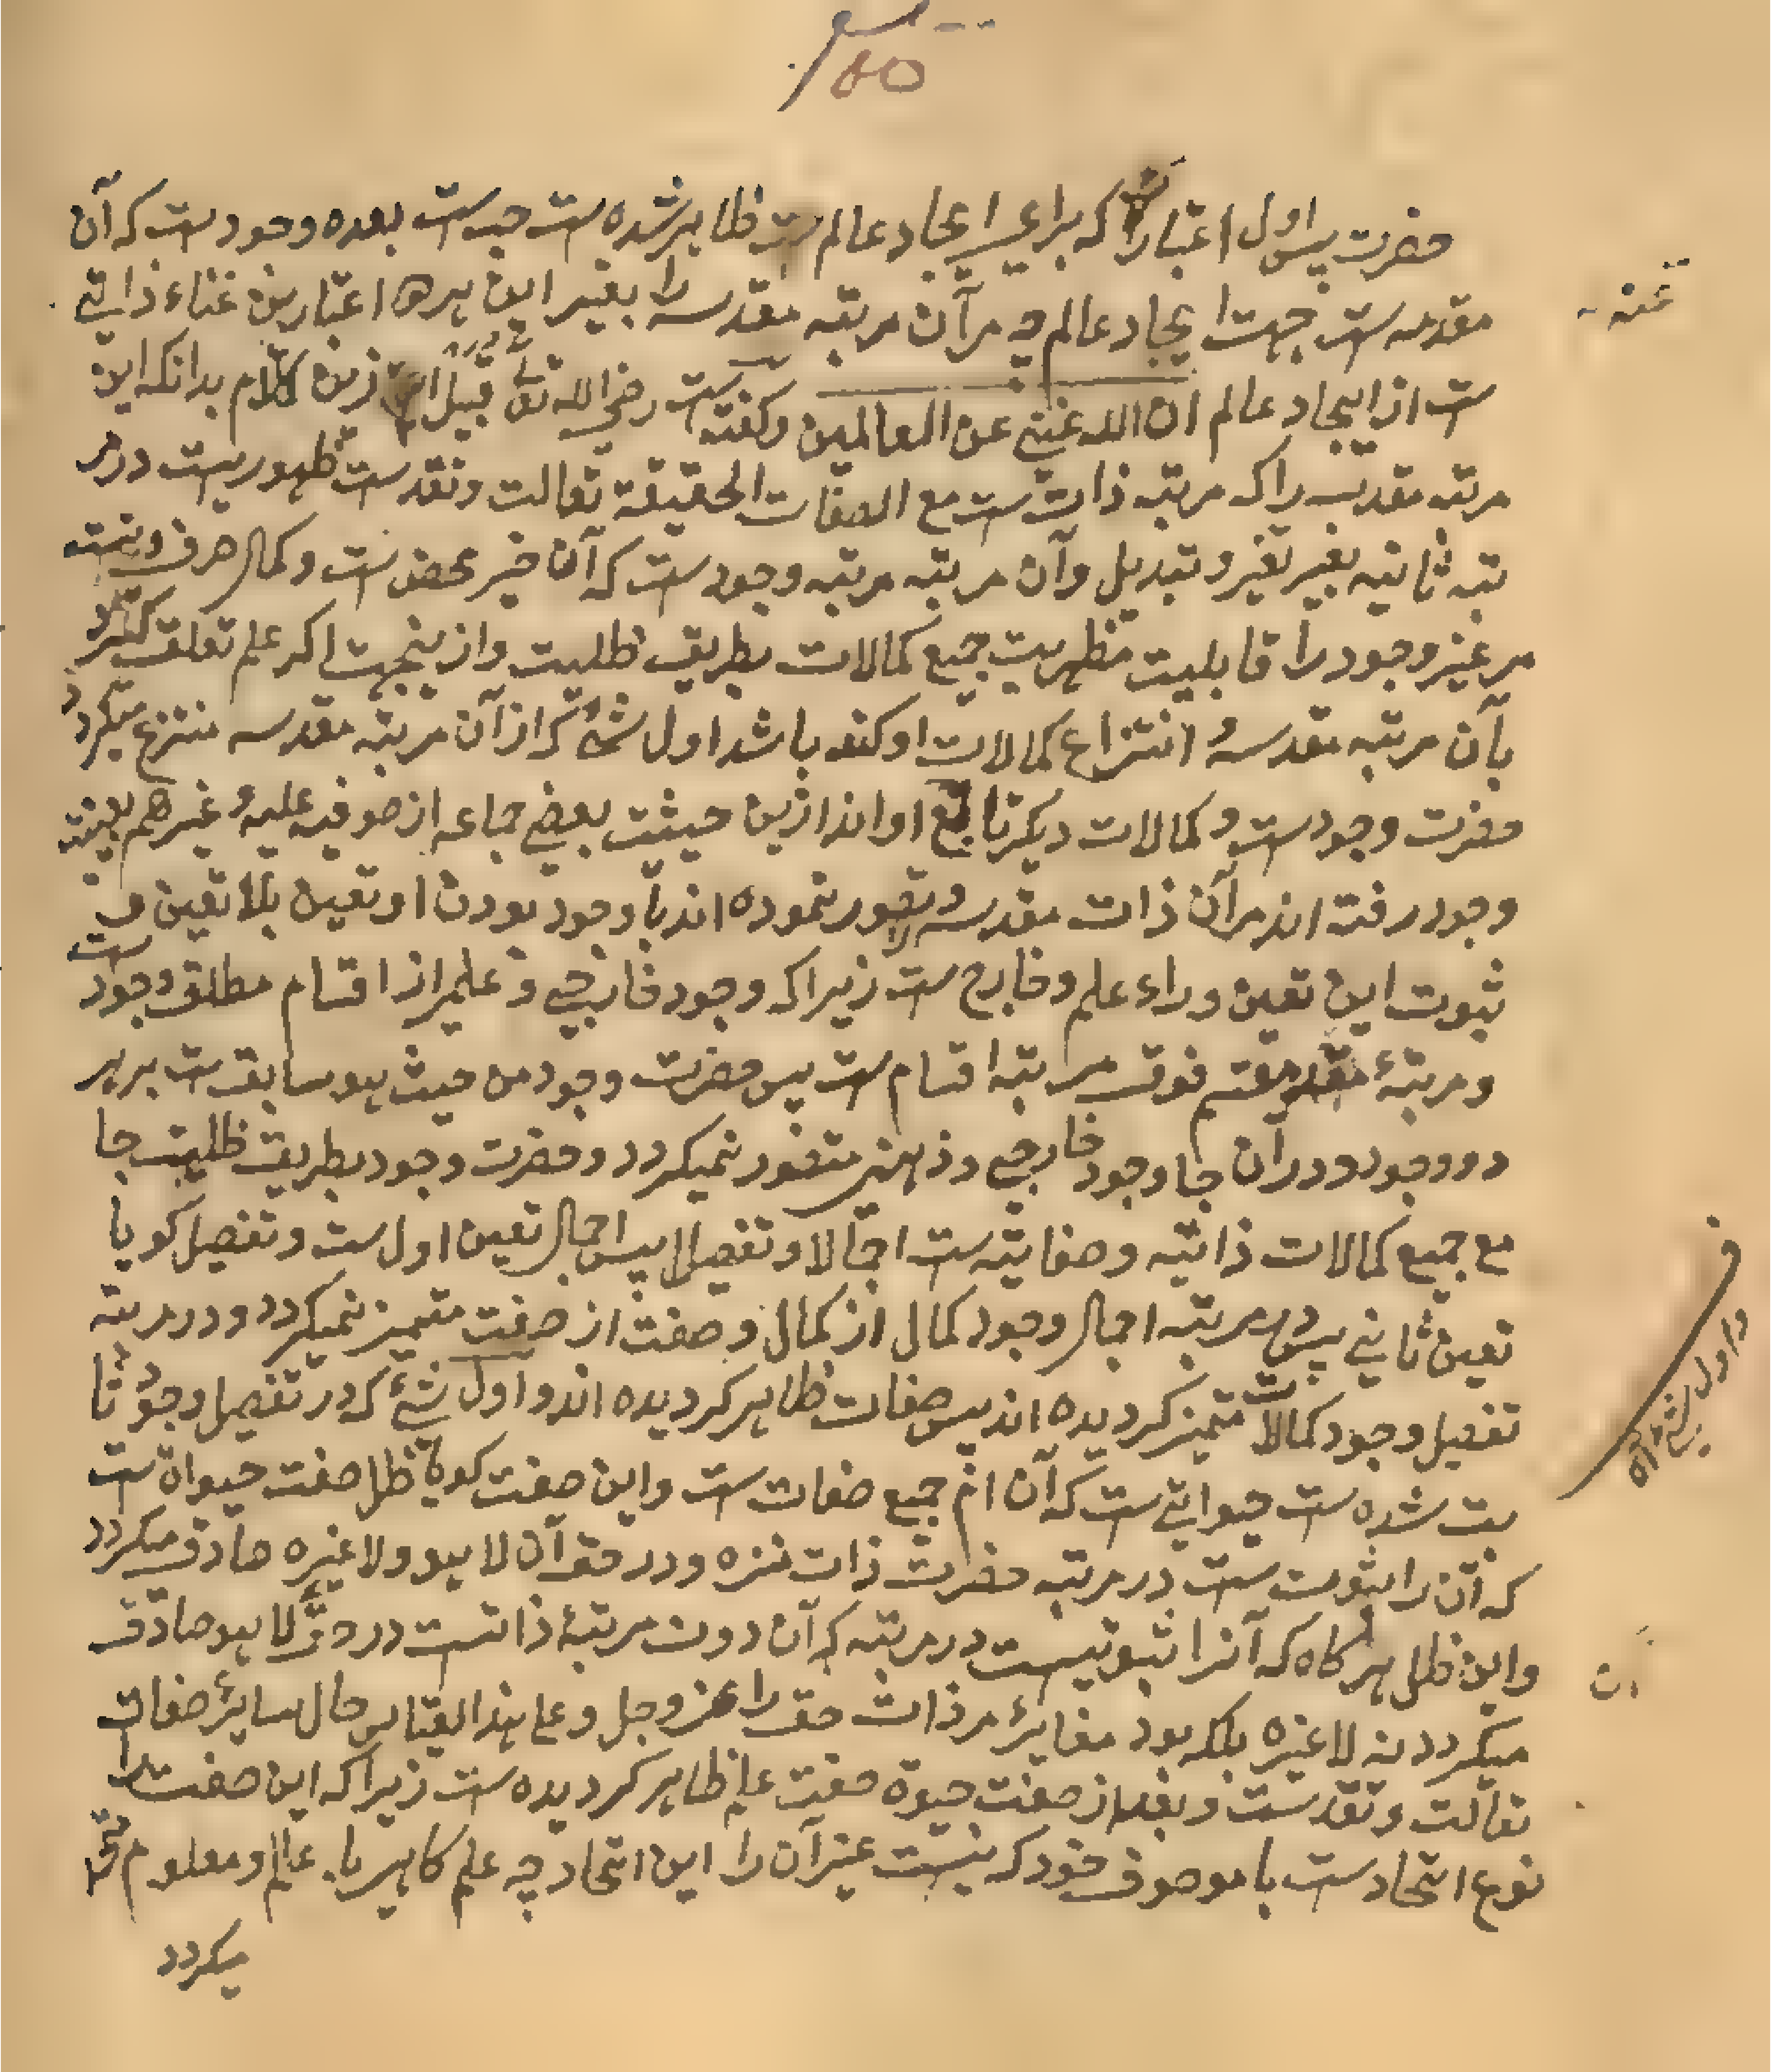 حضرت پس اول اعتبار که برای ایجاد عالم ظاهر شده ست حب ست بعده وجود ست که آن
مقدمه ست جهت ایجاد عالم چه مر آن مرتبه مقدسه را بغیر این هر دو اعتبارین غناء ذاتی
ست از ایجاد عالم ان الله غنی عن العالمین و کفته ست رضی الله تع قبیل ازین کلام بدانکه این
مرتبه مقدسه را که مرتبه ذات ست مع الصفات الحقیقة تعالت و تقدست ظهوریست در مر
تبه ثانیه بغیر تغیر و تبدیل و آن مرتبه مرتبه وجود ست که آن خیر محض ست و کمال صرف و نیست
مر غیر وجود را قابلیت مظهریت جمیع کمالات بطریق ظلیت و ازینجهت اکر علم تعلق کیرد
بآن مرتبه مقدسه و انتزاع کمالات او کند باشد اول شئ که از آن مرتبه مقدسه منتزع میکردد
حضرت وجود ست و کمالات دیکر تابع او اند ازین حیثیت بعضی جماعه از صوفیه علیه و غیرهم بعینیت
وجود رفته اند مر آن ذات مقدسه و تصور نموده اند با وجود بودن او تعین بلا تعین و
ثبوت این تعین وراء علم و خارج ست زیرا که وجود خارجی و علمی از اقسام مطلق وجود ست
و مرتبهٔ مقسم فوق مرتبه اقسام ست پس حضرت وجود من حیث هو سابق ست بر هر
دو وجود و در آن جا وجود خارجی و ذهنی متصور نمیکردد و حضرت وجود بطریق ظلیت جا
مع جمیع کمالات ذاتیه و صفاتیه ست اجمالا و تفصیلا پس اجمال تعین اول ست و تفصیل کویا
تعین ثانی پس در مرتبه اجمال وجود کمال از کمال و صفت از صفت متمیز نمیکردد و در مرتبه
تفصیل وجود کمالات متمیز کردیده اند پس صفات ظاهر کردیده اند و اول شئ که در تفصیل وجود ثا
بت شده ست حیواتی ست که آن ام جمیع صفات ست و این صفت کویا ظل صفت حیواة ست
که آن را ثبوت ست در مرتبه حضرت ذات منزه و در حق آن لا هو و لا غیره صادق میکردد
و این ظل هر کاه که آنرا ثبوتیست در مرتبه که آن دون مرتبهٔ ذاتست در حق لا هو صادق
میکردد نه لا غیره بلکه بود مغایر مر ذات حق را عز و جل و علی هذا القیاس حال سایر صفات
تعالت و تقدست و بعد از صفت حیوة صفت علم ظاهر کردیده ست زیرا که این صفت را
نوع اتحاد ست با موصوف خود که نیست غیر آن را این اتحاد چه علم کاهی با عالم و معلوم متحد
میکردد